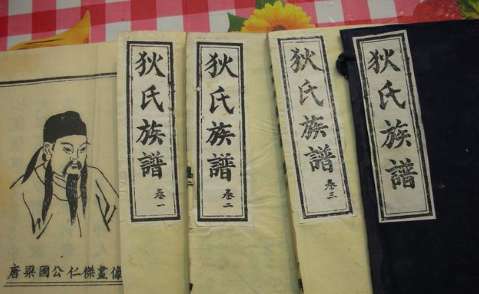 唐梁國公仁傑畫像
狄氏族譜 卷一
狄氏族譜 卷二
狄氏族譜 卷三
狄氏族譜